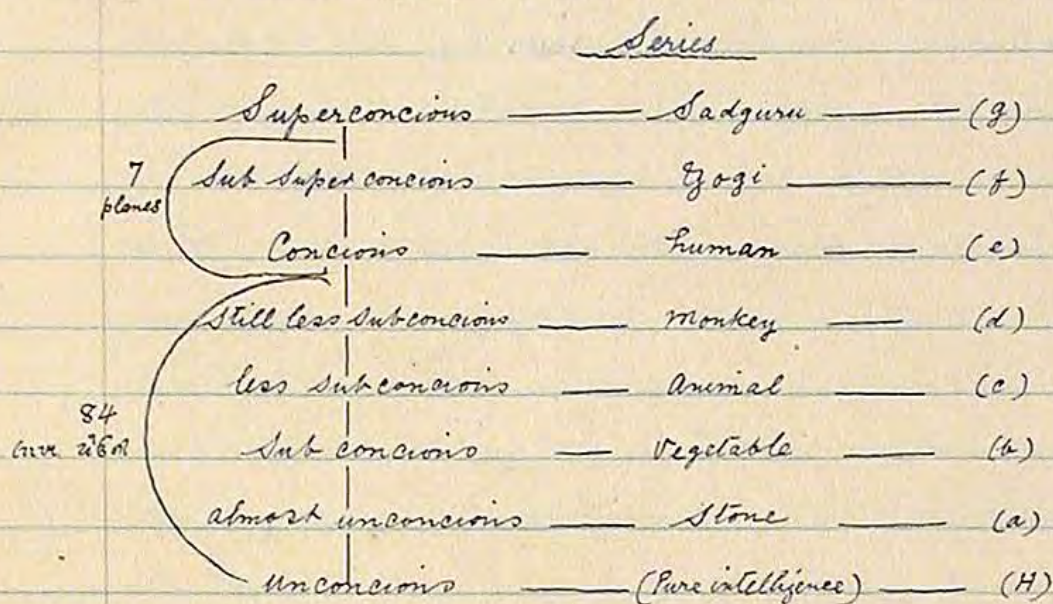 Series
Superconcious — Sadguru — (g)
7 Sub Super concious — Yogi — (f)
planes
Concious — human — (e)
Still less Subconcious — monkey — (d)
less subconcious — Animal — (c)
84
Sub concious — Vegetable — (b)
almost unconcious — Stone — (a)
unconcious — (Pure intelligence) — (H)